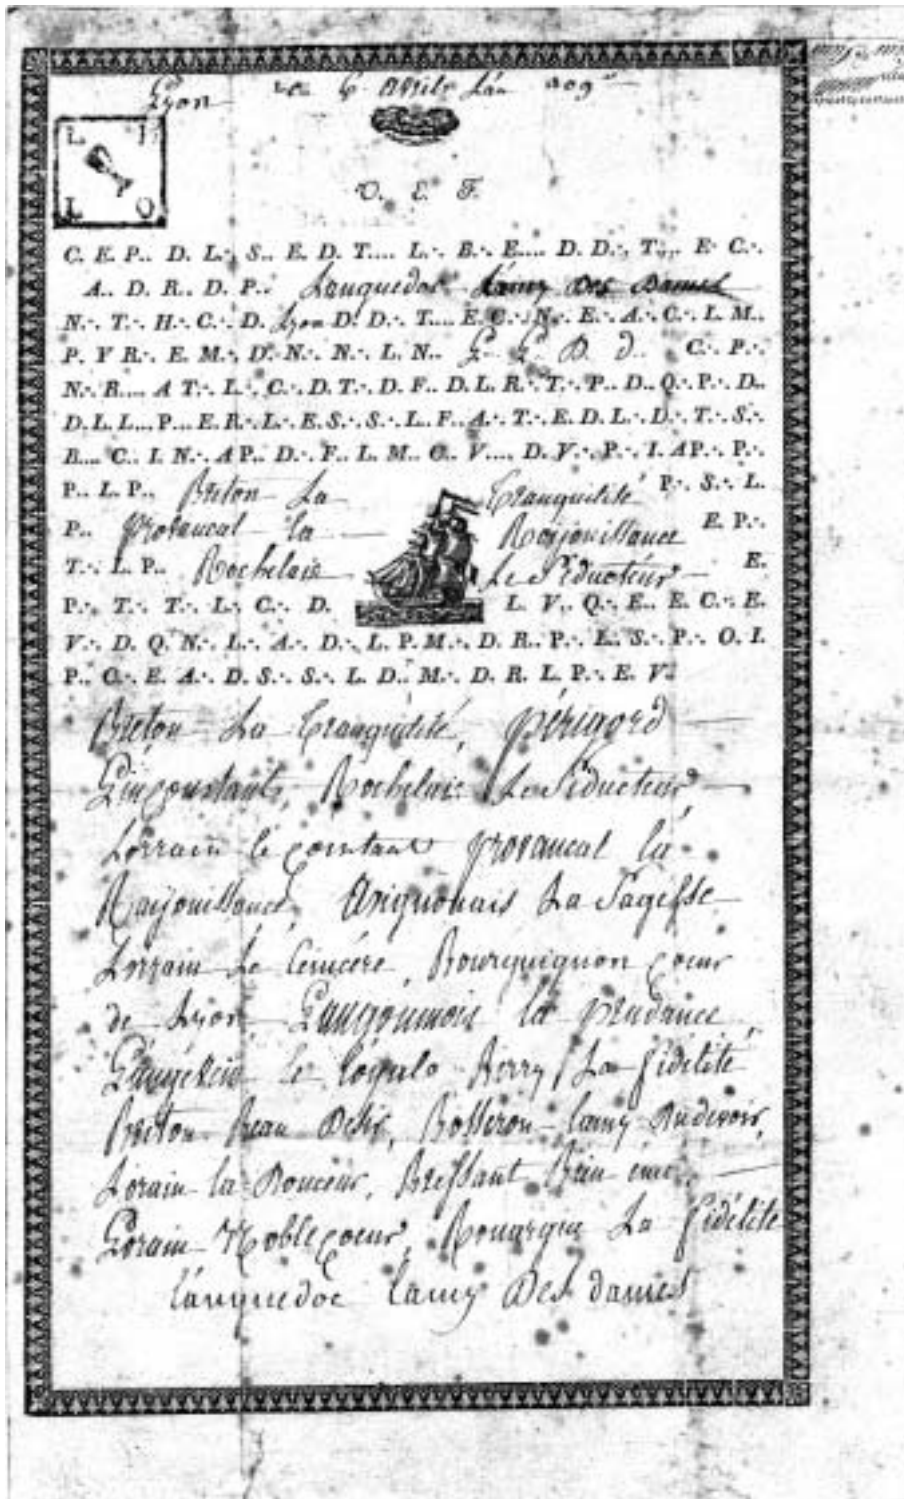 Lyon le 6 Avril L'an 1809
L. J.
L O
V. E. F.
C. E. P.. D. L.·. S.. E. D. T.... L.·. B.·. E.... D. D.·. T.,.. E C.·.
A.. D. R.. D. P.. Languedoc Lamy Des Dames
N.·. T.·. H.·. C.·. D. Lyon D. D.·. T.... E. C.·. N.·. E.·. A.·. C.·. L. M..
P. V R.·. E. M.·. D.·. N.·. N.·. L. N.. D. d.. C.·. P.·.
N.·. R.... A T.·. L.·. C.·. D.T.·. D. F.. D. L R.·. T.·. P.. D.. Q.·. P.·. D..
D. L L... P... E. R.·. L.·. E. S.·. S.·. L. F.. A.·. T.·. E. D L.·. D.·. T.·. S.·.
B.... C.. I. N.·. A P.. D.·. F.. L. M.. C.. V.... D. V.·. P.·. I. A P.·. P.·.
P.. L. P.. Breton La Tranquilité P.·. S.·. L.
P.. provancal la Raijouissance E. P.·.
T.·. L. P.. Rochelais Le Séducteur E.
P.·. T.·. T.·. L.·. C.·. D. L. V.. Q.·. E.. E. C.·. E.
V.·. D. Q. N.·. L.·. A.·. D.·. L. P. M.·. D. R.. P.·. L.. S.·. P.·. O. I.
P.. C.·. E. A.·. D. S.·. S.·. L. D.. M.·. D. R. L. P.·. E. V.
Breton La Tranquilité, périgord
L'inconstant, Rochelais Le Séducteur
Lorrain le contant provancal la
Raijouissance, Avignonais La Sagesse
Lorrain Le Cincère, Bourguignon Coeur
de Lyon la prudance,
le Berry La fidélité
Breton Beau Desir, Lamy Dudevoir,
Lorain la Douceur, Bressant Bien
Lorain Noble Coeur, Rouargue La fidélité
Languedoc Lamy Des dames